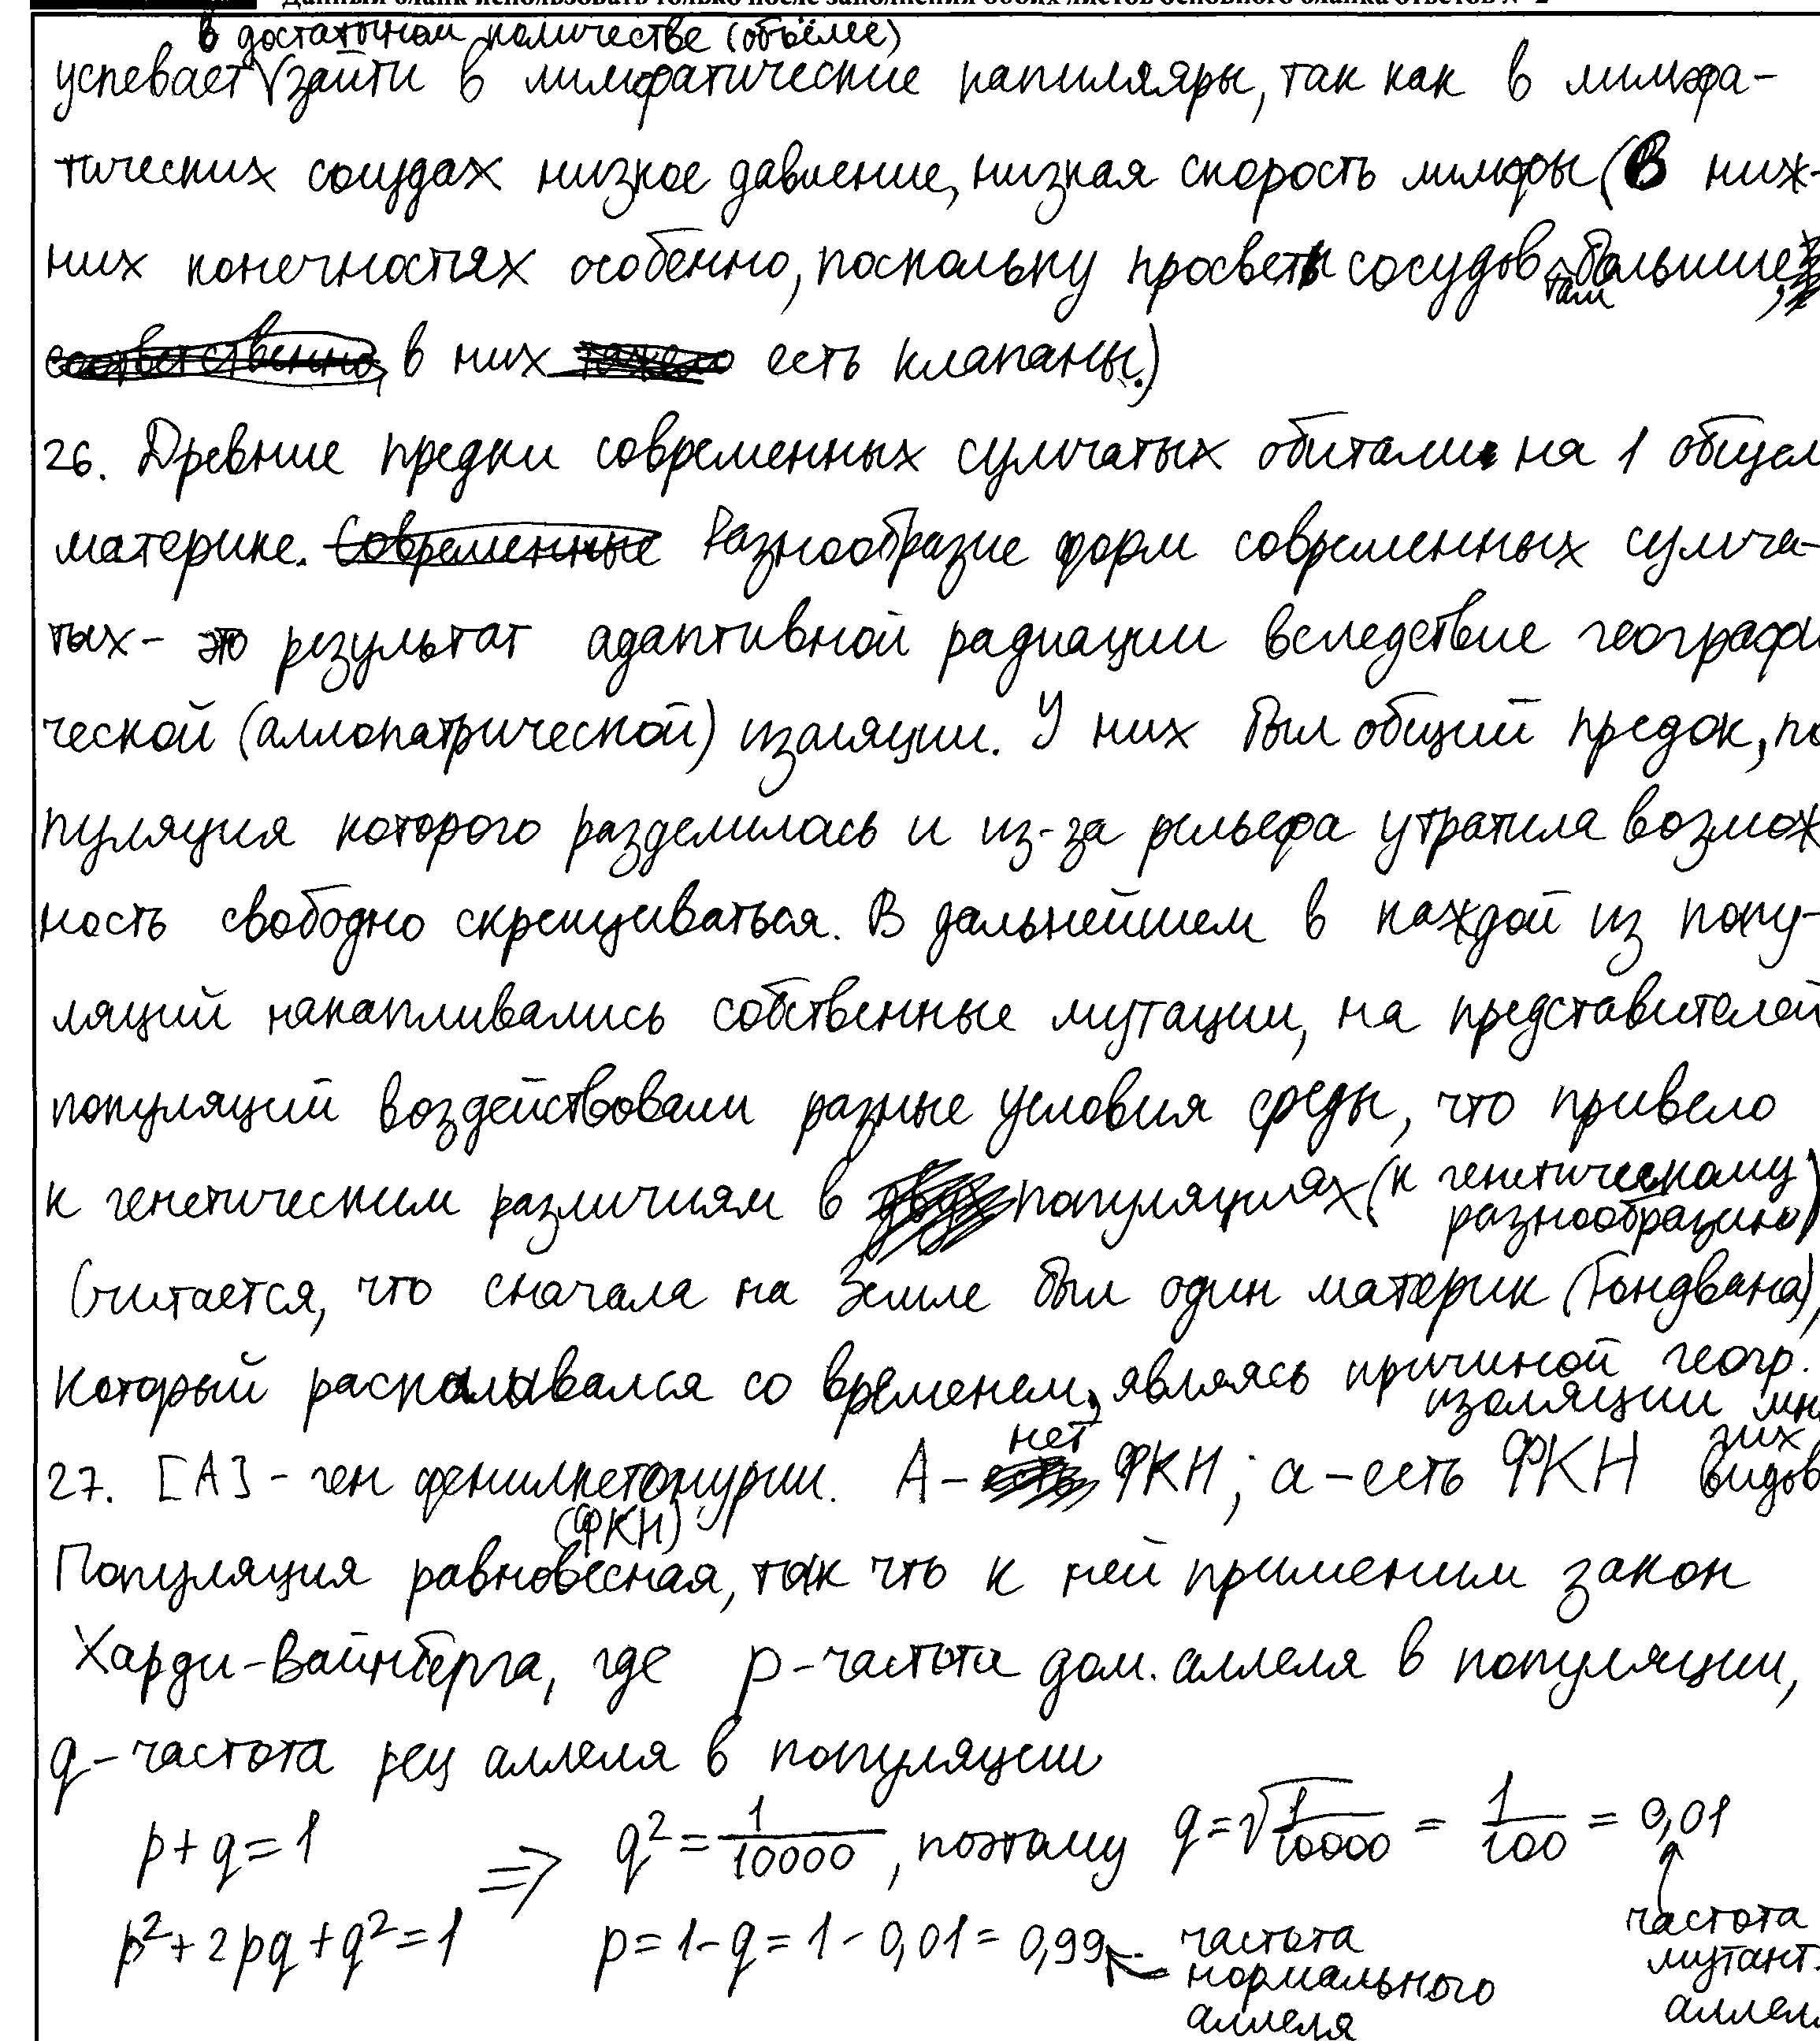 Данный бланк использовать только после заполнения обоих листов основного бланка ответов № 2
в достаточном количестве (объёме)
успевает √зайти в лимфатические капилляры, так как в лимфа-
тических сосудах низкое давление, низкая скорость лимфы (в ниж-
них конечностях особенно, поскольку просветы сосудов там больше,
в них есть клапаны.)
26. Древние предки современных сумчатых обитали на 1 общем
материке. Разнообразие форм современных сумча-
тых - это результат адаптивной радиации вследствие географи
ческой (аллопатрической) изаляции. У них был общий предок, по
пуляция которого разделилась и из-за рельефа утратила возмож
ность свободно скрещиваться. В дальнейшем в каждой из попу-
ляций накапливались собственные мутации, на представителей
популяций воздействовали разные условия среды, что привело
к генетическим различиям в популяциях (к генетическому
разнообразию)
Считается, что сначала на Земле был один материк (Гондвана),
который раскалывался со временем, являясь причиной геогр.
изоляции мн
гих
видов
27. [A] - ген фенилкетонурии. А - нет ФКН; а - есть ФКН
(ФКН)
Популяция равновесная, так что к ней применим закон
Харди-Вайнберга, где p - частота дом. аллеля в популяции,
q - частота рец аллеля в популяции
p + q = 1 => q² = 1/10000, поэтому q = √1/10000 = 1/100 = 0,01
частота
мутант.
аллел
p² + 2pq + q² = 1 p = 1 - q = 1 - 0,01 = 0,99 ← частота
нормального
аллеля